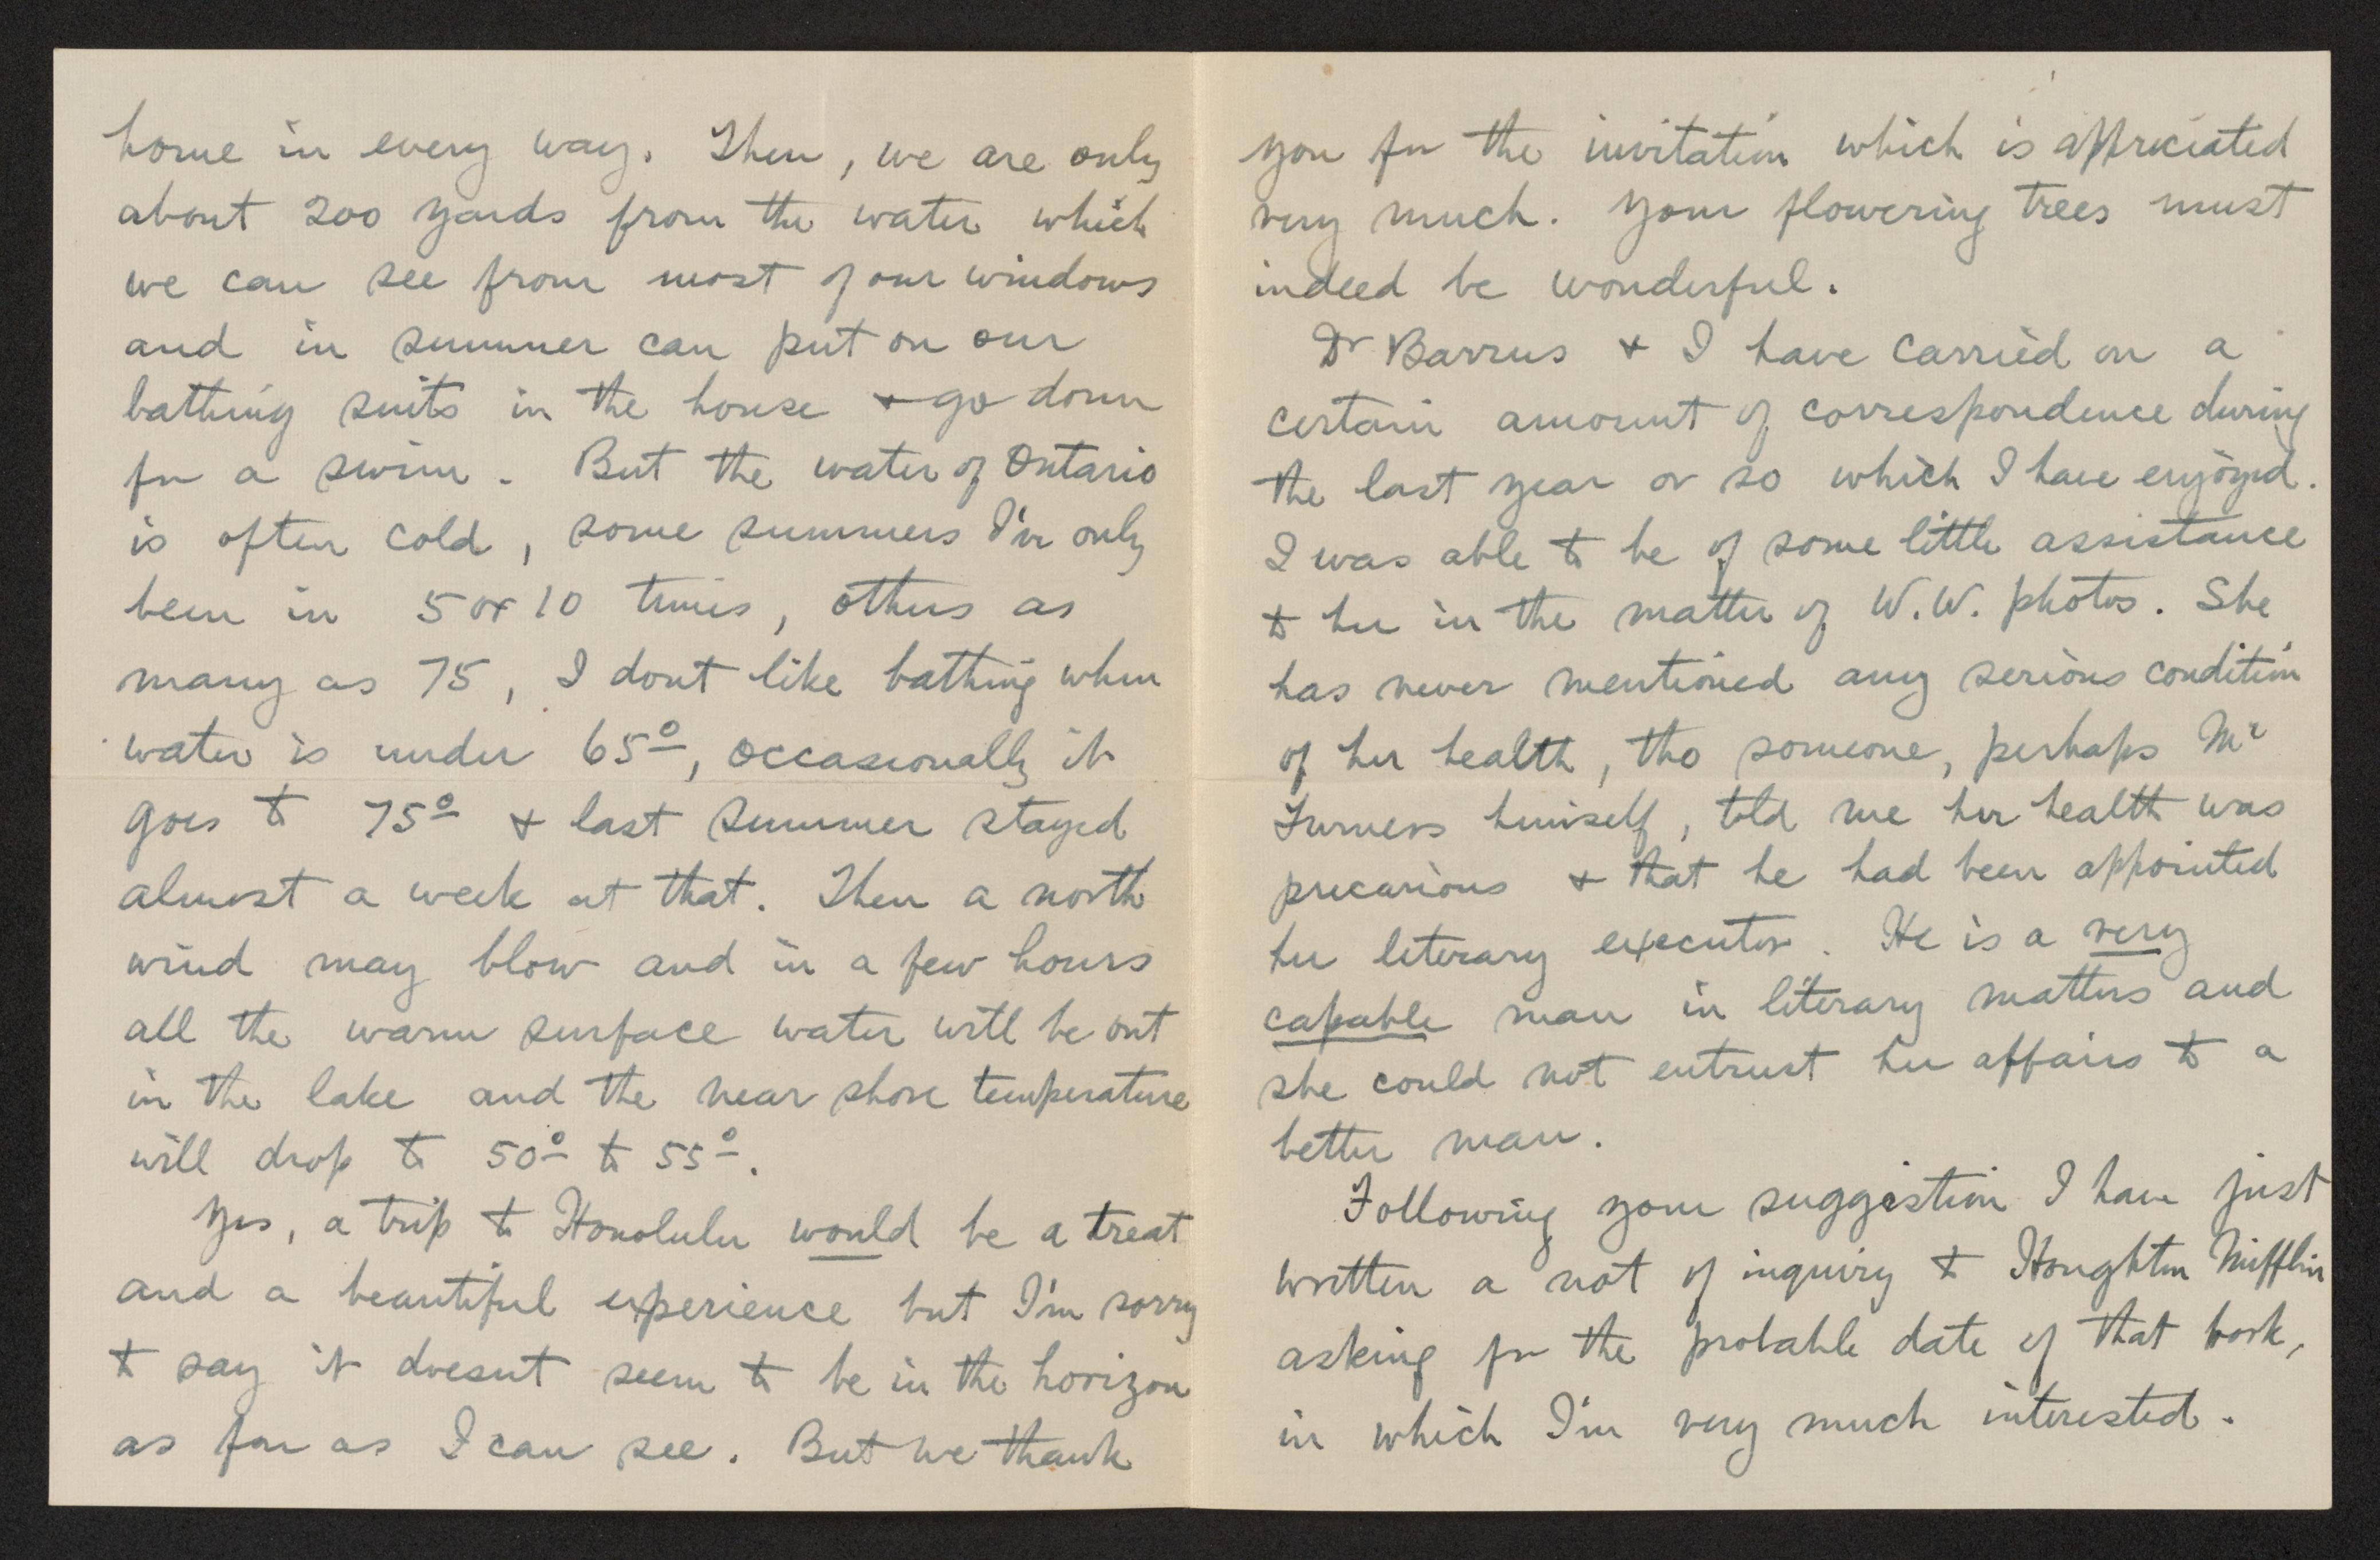 home in every way. Then, we are only
about 200 yards from the water which
we can see from most of our windows
and in summer can put on our
bathing suits in the house & go down
for a swim. But the water of Ontario
is often cold, some summers I've only
been in 5 or 10 times, others as
many as 75, I dont like bathing when
water is under 65°, occasionally it
goes to 75° & last summer stayed
almost a week at that. Then a north
wind may blow and in a few hours
all the warm surface water will be out
in the lake and the near shore temperature
will drop to 50° to 55°.
Yes, a trip to Honolulu would be a treat
and a beautiful experience but I'm sorry
to say it doesnt seem to be in the horizon
as far as I can see. But we thank
you for the invitation which is appreciated
very much. Your flowering trees must
indeed be wonderful.
Dr Barrus & I have carried on a
certain amount of correspondence during
the last year or so which I have enjoyed.
I was able to be of some little assistance
to her in the matter of W.W. photos. She
has never mentioned any serious condition
of her health, tho someone, perhaps Mr
Furness himself, told me her health was
precarious & that he had been appointed
her literary executor. He is a very
capable man in literary matters and
she could not entrust her affairs to a
better man.
Following your suggestion I have just
written a not of inquiry to Houghton Mifflin
asking for the probable date of that book,
in which I'm very much interested.